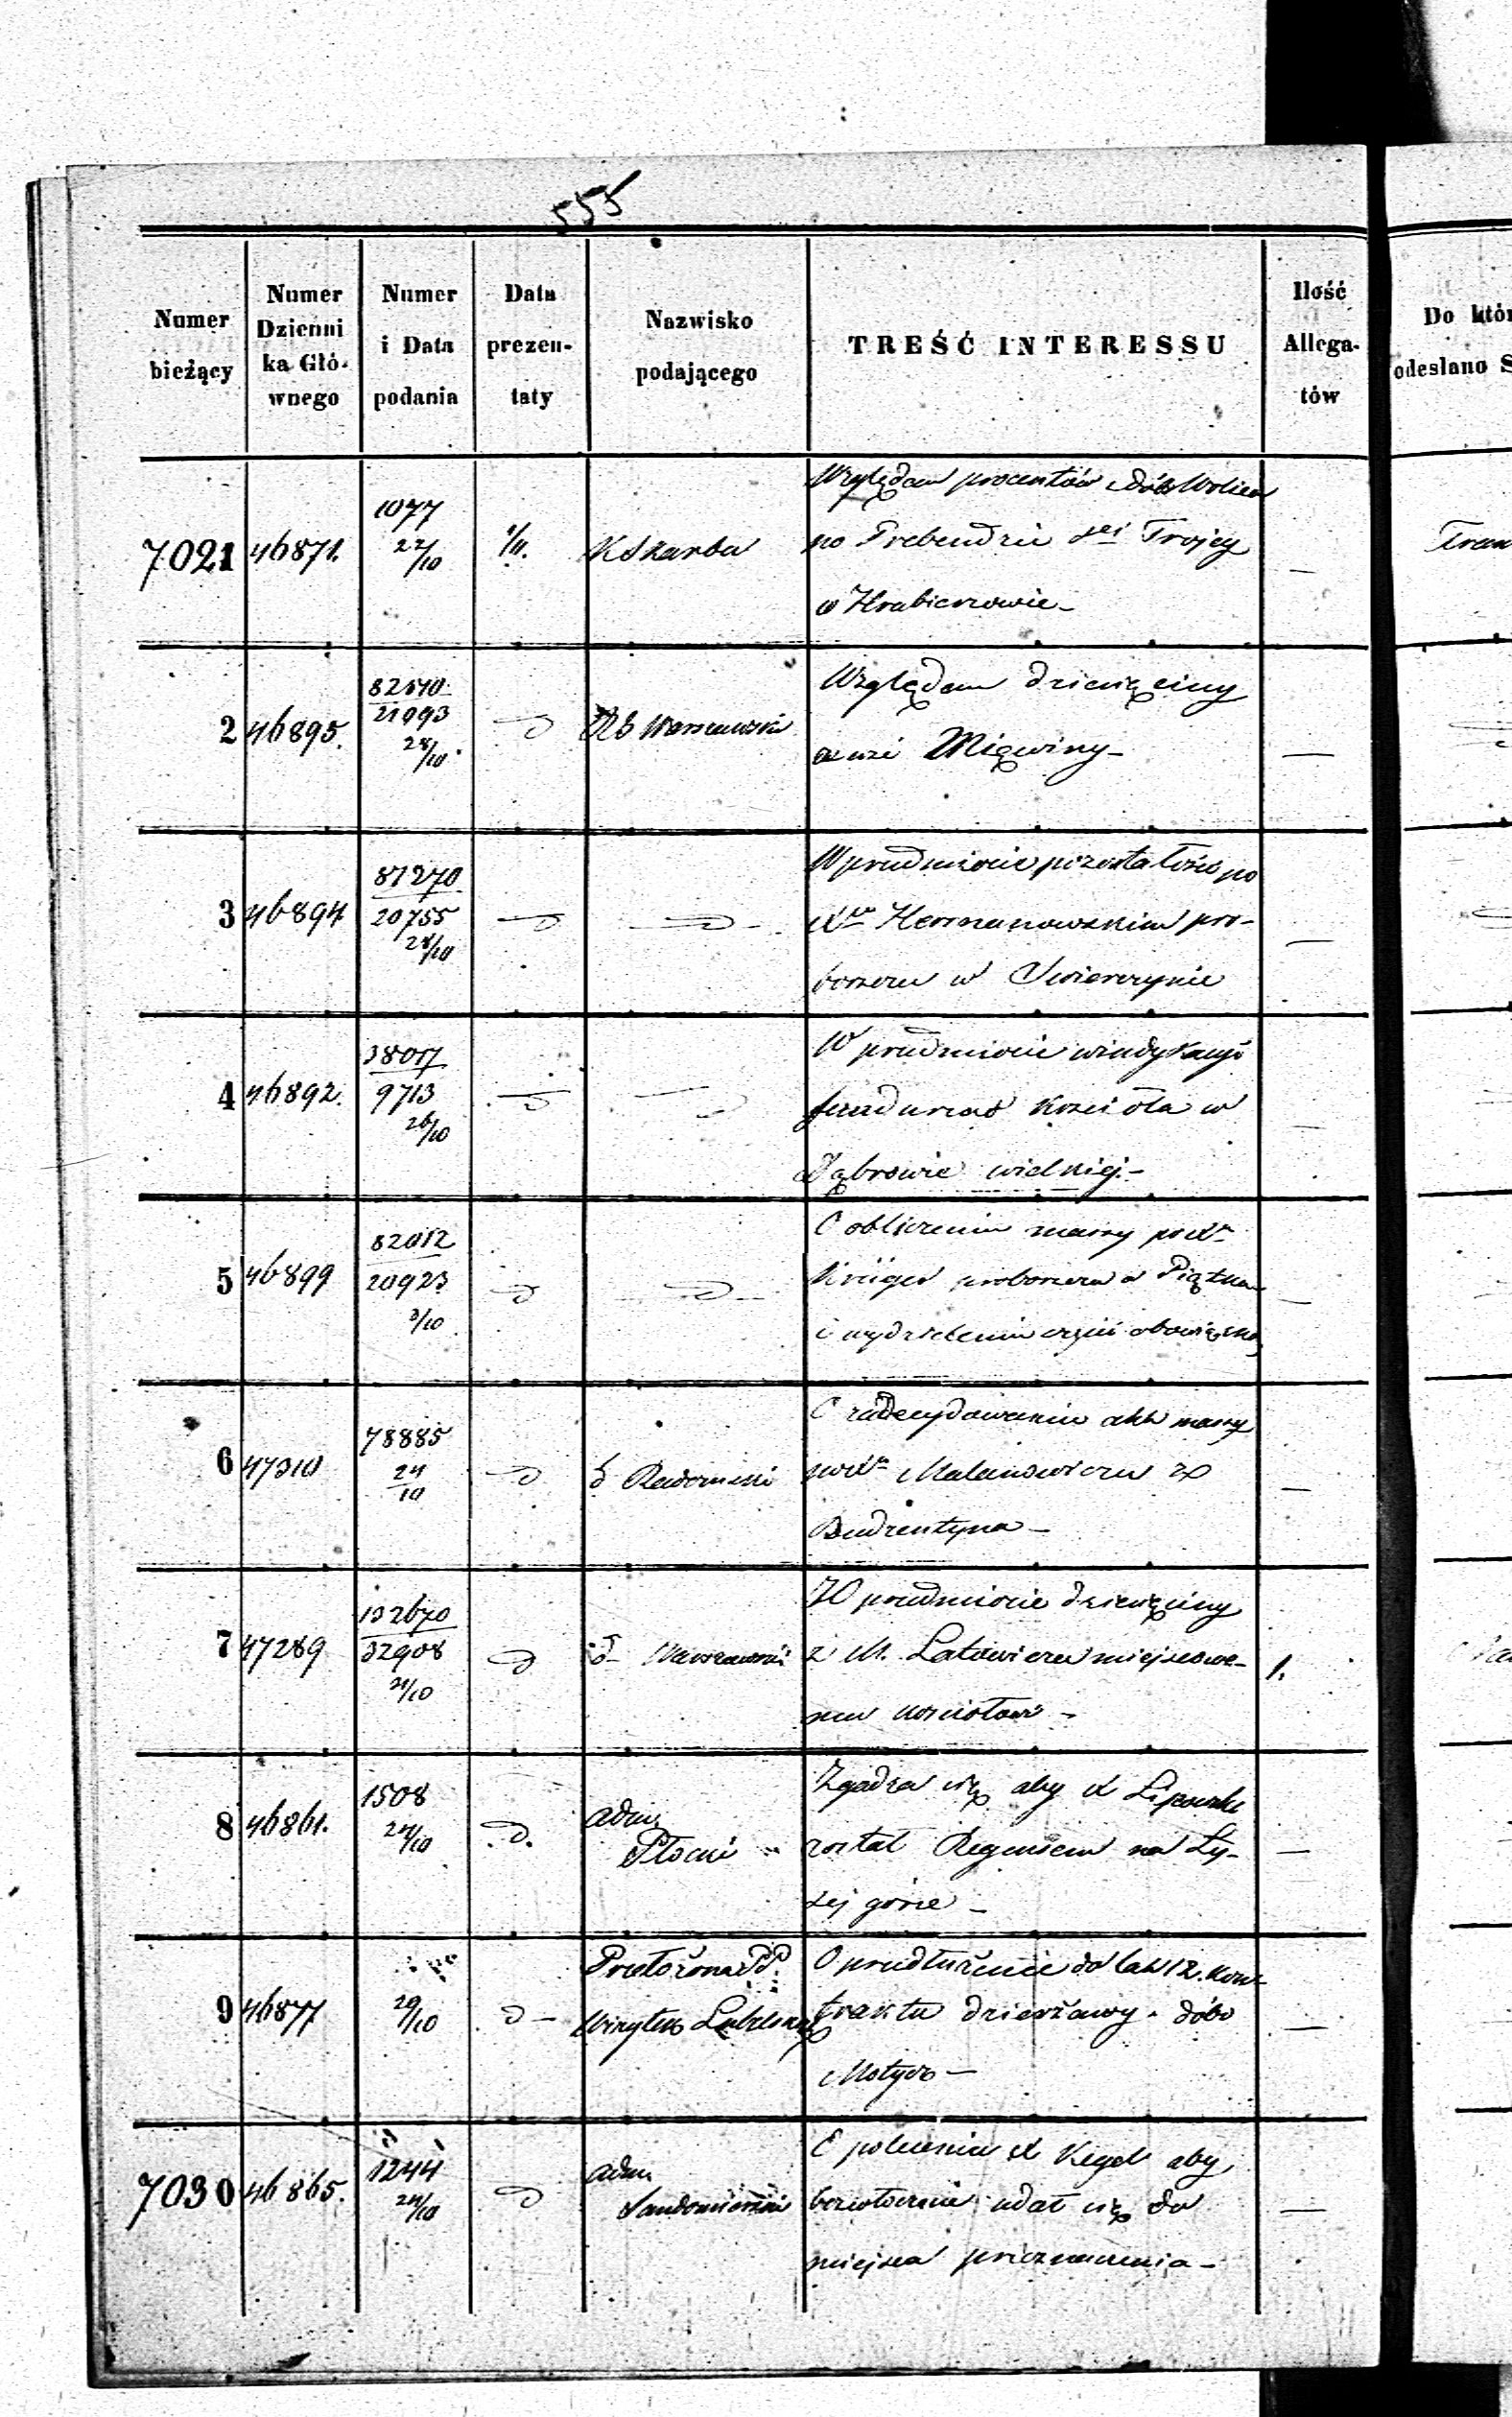 555
Numer bieżący
Numer Dzienni ka Głó- wnego
Numer i Data podania
Data prezen- taty
Nazwisko podającego
TREŚĆ INTERESSU
Ilość Allega- tów
Do któr
odesłano S
7021 46871. 1077 22/10 K Skarbu
Względem procentów dóbr Wolica
po Prebendzie Stej Trójcy
w Hrubieszowie -
2 46895. 21993 28/10 Warszawski
Względem dziesięciny
ze wsi Mięwiny -
3 46894 87270 20755 28/10
W przedmiocie pozostałości po
Hermanowskim pro-
boszczu w Świerczynie
4 46892. 38017 9713 26/10
W przedmiocie windykacyi
funduszów Kościoła w
Dąbrowie wielkiej -
5 46899 82012 20923 3/10
O obliczeniu massy po
Krüger proboszczu w Piątku
i wydzieleniu części obowiązko
6 47310 78885 24/10 Radomski
O zadecydowaniu akt massy
Malanowiczu z
Bodzentyna -
7 47289 132670 32908 21/10 Warszawski
W przedmiocie dziesięciny
z M. Latowicza miejscowe-
mu kościołowi - 1.
8 46861. 1508 24/10 Adm. Płocki
Zgadza się aby X Lipowski
został Regensem na Ły-
sej górze -
9 46877 29/10 Przełożona PP. Wizytek Lubelska
O przedłużenie do lat 12. kon-
traktu dzierżawy dóbr
Motycz -
7030 46865. 1244 24/10 Adm. Sandomierski
O polecenie X Kegel aby
bezzwłocznie udał się do
miejsca przeznaczenia -